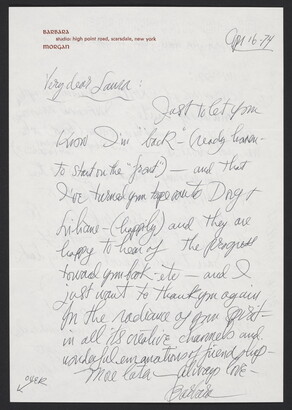 BARBARA
studio: high point road, scarsdale, new york
MORGAN
Apr 16-74
Very dear Laura:
Just to let you
know I'm "back" - (ready
to start on the "front") - and that
I've turned your tape over to Doug +
Liliane - (happily) and they are
happy to hear of the progress
toward your book - etc - and I
just want to thank you again
for the radiance of your spirit -
in all its creative channels and
wonderful emanations of friendship -
More later - always love -
Barbara
OVER